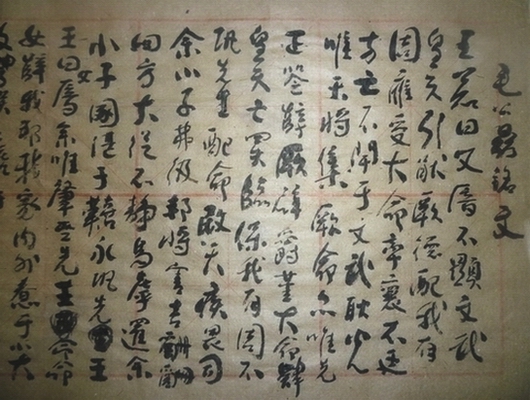 毛公鼎銘文
王若曰父厝不顯文武
皇天引猒厥德配我有
周雁受大命率褱不廷
方亡不閈于文武耿光
唯天將集厥命亦唯先
正辥厥辟爵堇大命肆
皇天亡斁臨保我有周不
巩先王配命敃天疾畏司
余小子弗彶邦將害吉
四方大從不靜烏虖余
小子圂湛于艱永巩先王
王曰父厝余唯肇巠先王命命
女辥我邦我家內外惷于小大